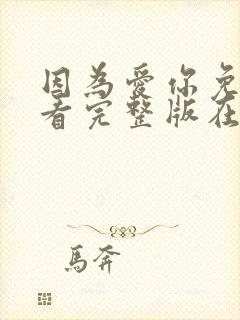 因為愛你免
看完整版在
馬奔